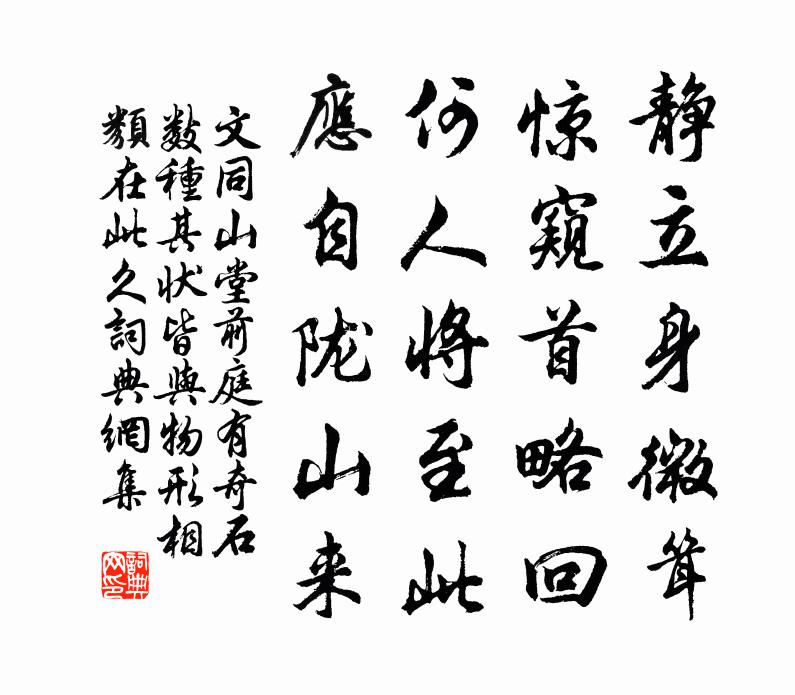 静立身微耸
惊窥首略回
何人将至此
應自陇山来
文同山堂前庭有奇石
数種其状皆與物形相
類在此久詞典網集
詞典网印